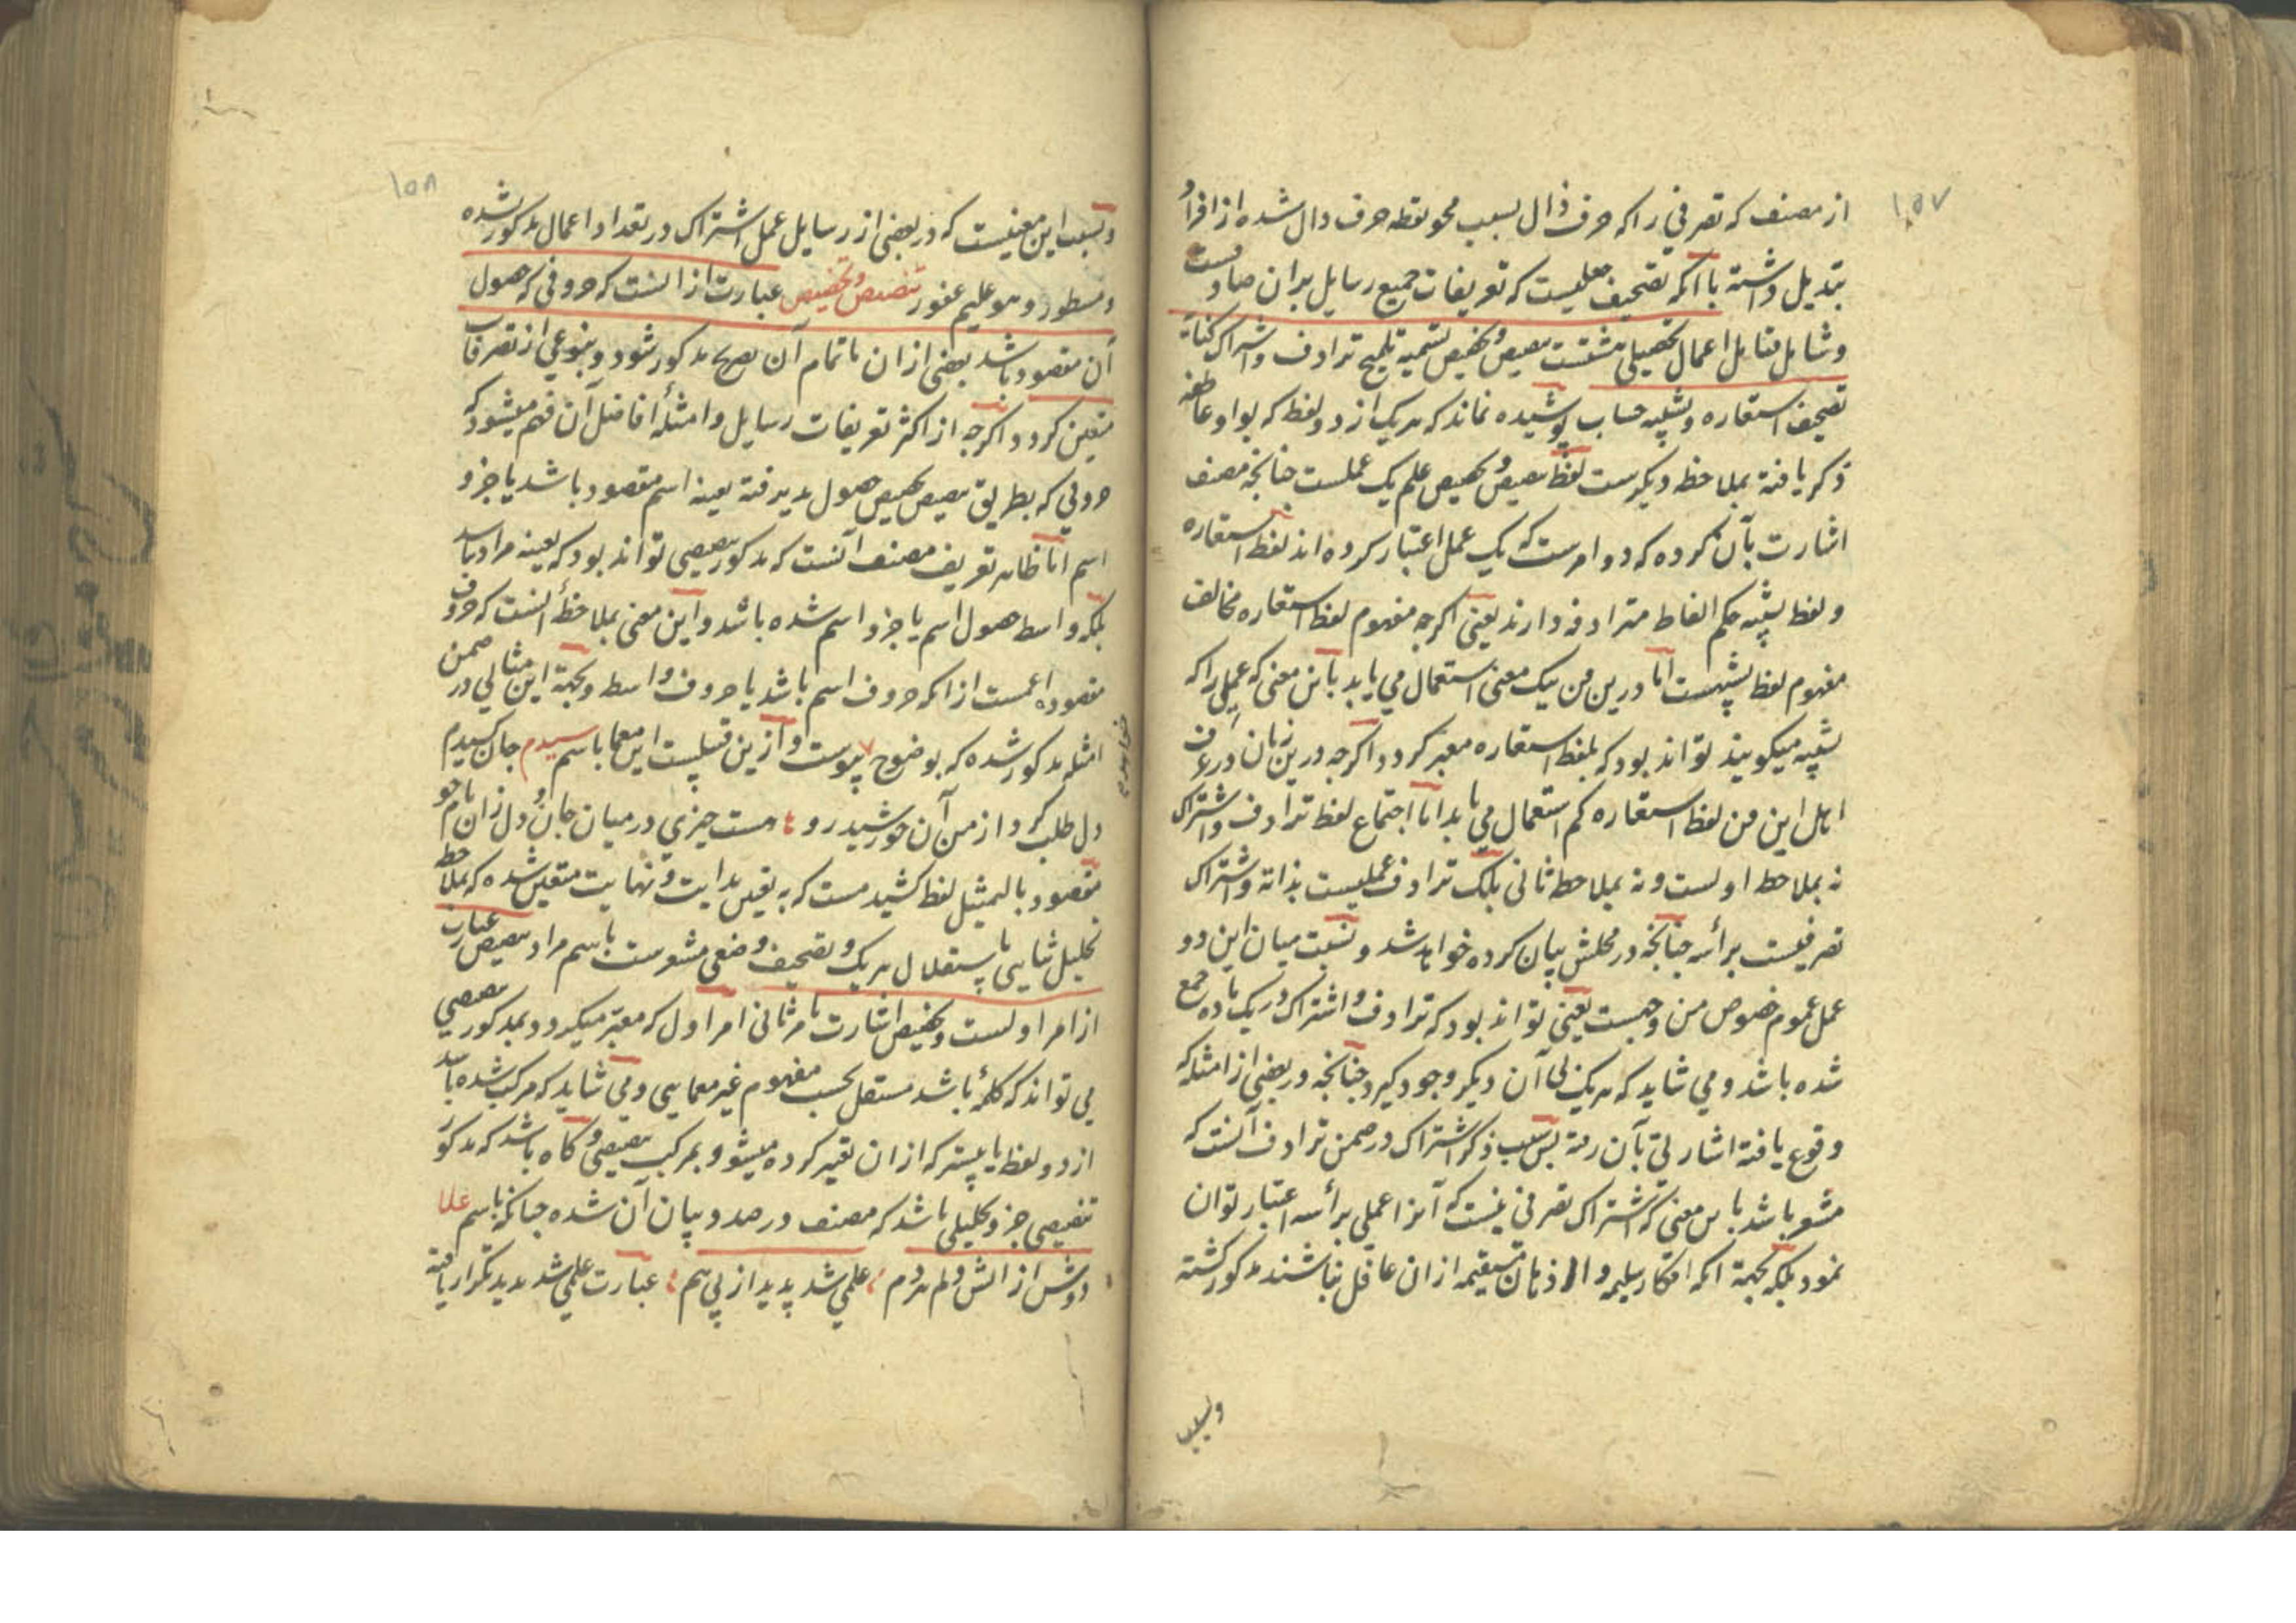 ۱۵۷
از مصنف که تصرفی را که حرف ذال بسبب محو نقطه حرف دال شده از افراد
تبدیل داشته با آنکه تصحیف جعلیست که تعریفات جمیع رسایل بران صادقست
و شامل قابل اعمال تحصیلی هشتست تنصیص و تخصیص تسمیه تلمیح ترادف و اشتراک کنایة
تصحیف استعاره و تشبیه حساب پوشیده نماند که هریک از دو لفظ که بواو عاطفه
ذکر یافته بملاحظه دیگرست لفظ تنصیص و تخصیص علم یک عملست چنانچه مصنف
اشارت بآن کرده که دو امرست که یک عمل اعتبار کرده اند لفظ استعاره
و لفظ تشبیه حکم الفاظ مترادفه دارند یعنی اگرچه مفهوم لفظ استعاره مخالف
مفهوم لفظ تشبیهست اما درین فن بیک معنی استعمال می یابد باین معنی که عملی را که
تشبیه میگویند تواند بود که بلفظ استعاره معبر گردد اگرچه درین زمان در عرف
اهل این فن لفظ استعاره کم استعمال می یابد اما اجتماع لفظ ترادف و اشتراک
نه بملاحظ اولست و نه بملاحظ ثانی بلک ترادف عملیست بذاته و اشتراک
تصرفیست برأسه چنانچه در محلش بیان کرده خواهد شد و نسبت میان این دو
عمل عموم خصوص من وجهست یعنی تواند بود که ترادف و اشتراک در یک ماده جمع
شده باشد و می شاید که هریک بی آن دیگر وجود گیرد چنانچه در بعضی از امثله که
وقوع یافته اشارتی بآن رفته پس سبب ذکر اشتراک در ضمن ترادف آنست که
مشعر باشد باین معنی که اشتراک تصرفی نیست که آنرا عملی برأسه اعتبار توان
نمود بلکه بجهة آنکه افکار سلیمه و اذهان مستقیمه ازان غافل نباشند مذکور گشته
وبسبب
۱۵۸
وبسبب این معنیست که در بعضی از رسایل عمل اشتراک در تعداد اعمال مذکور شده
و مسطور و هو علیم غفور تنصیص و تخصیص عبارت از انست که حروفی که حصول
آن مقصود باشد بعضی ازان یا تمام آن بصریح مذکور شود و بنوعی از تصرفات
متعین گردد و اگرچه از اکثر تعریفات رسایل و امثلهٔ افاضل آن فهم میشود که
حروفی که بطریق تنصیص و تخصیص حصول پذیرفته بعینه اسم مقصود باشد یا جزو
اسم اما ظاهر تعریف مصنف آنست که مذکور تنصیصی تواند بود که بعینه مراد باشد
بلکه واسط حصول اسم یا جزو اسم شده باشد و این معنی بملاحظهٔ انست که حروف
مقصوده اعمست از آنکه حروف اسم باشد یا حروف واسط و بجهة این مثالی در ضمن
امثله مذکور شده که بوضوح پیوست و ازین قبیلست این معما باسم سیدم جان کشیدم
دل طلب کرد از من آن خورشید رو هست چیزی در میان جان و دل زان نام جو
مقصود بالتمثیل لفظ کشیدمست که به تعین بدایت و نهایت متعین شده که بملاحظ
تحلیل ثنایی باستقلال هریک و تصحیف وضعی مشعرست باسم مراد تنصیص عبارت
از امر اولست و تخصیص اشارت بامر ثانی امر اول که معتبر میگردد بمذکور تنصیصی
می تواند که کلمهٔ باشد مستقل بحسب مفهوم غیر معمایی و می شاید که مرکب شده باشد
از دو لفظ یا بیشتر که ازان تعبیر کرده میشود بمرکب تنصیصی و گاه باشد که مذکور
تنصیصی جزو تحلیلی باشد که مصنف در صدد بیان آن شده چنانکه باسم علا
دوش از آتش دلم هردم علمی شد پدید از پی هم عبارت علمی شد پدید تکرار یافته